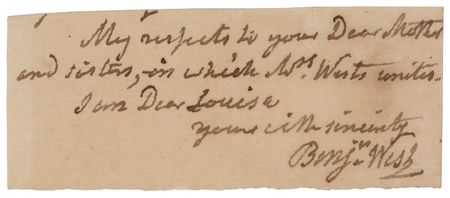 My respects to your Dear Mother
and sisters, in which Mrs. Wests unites.
I am Dear Louisa
yours with sincerity
Benjn. West